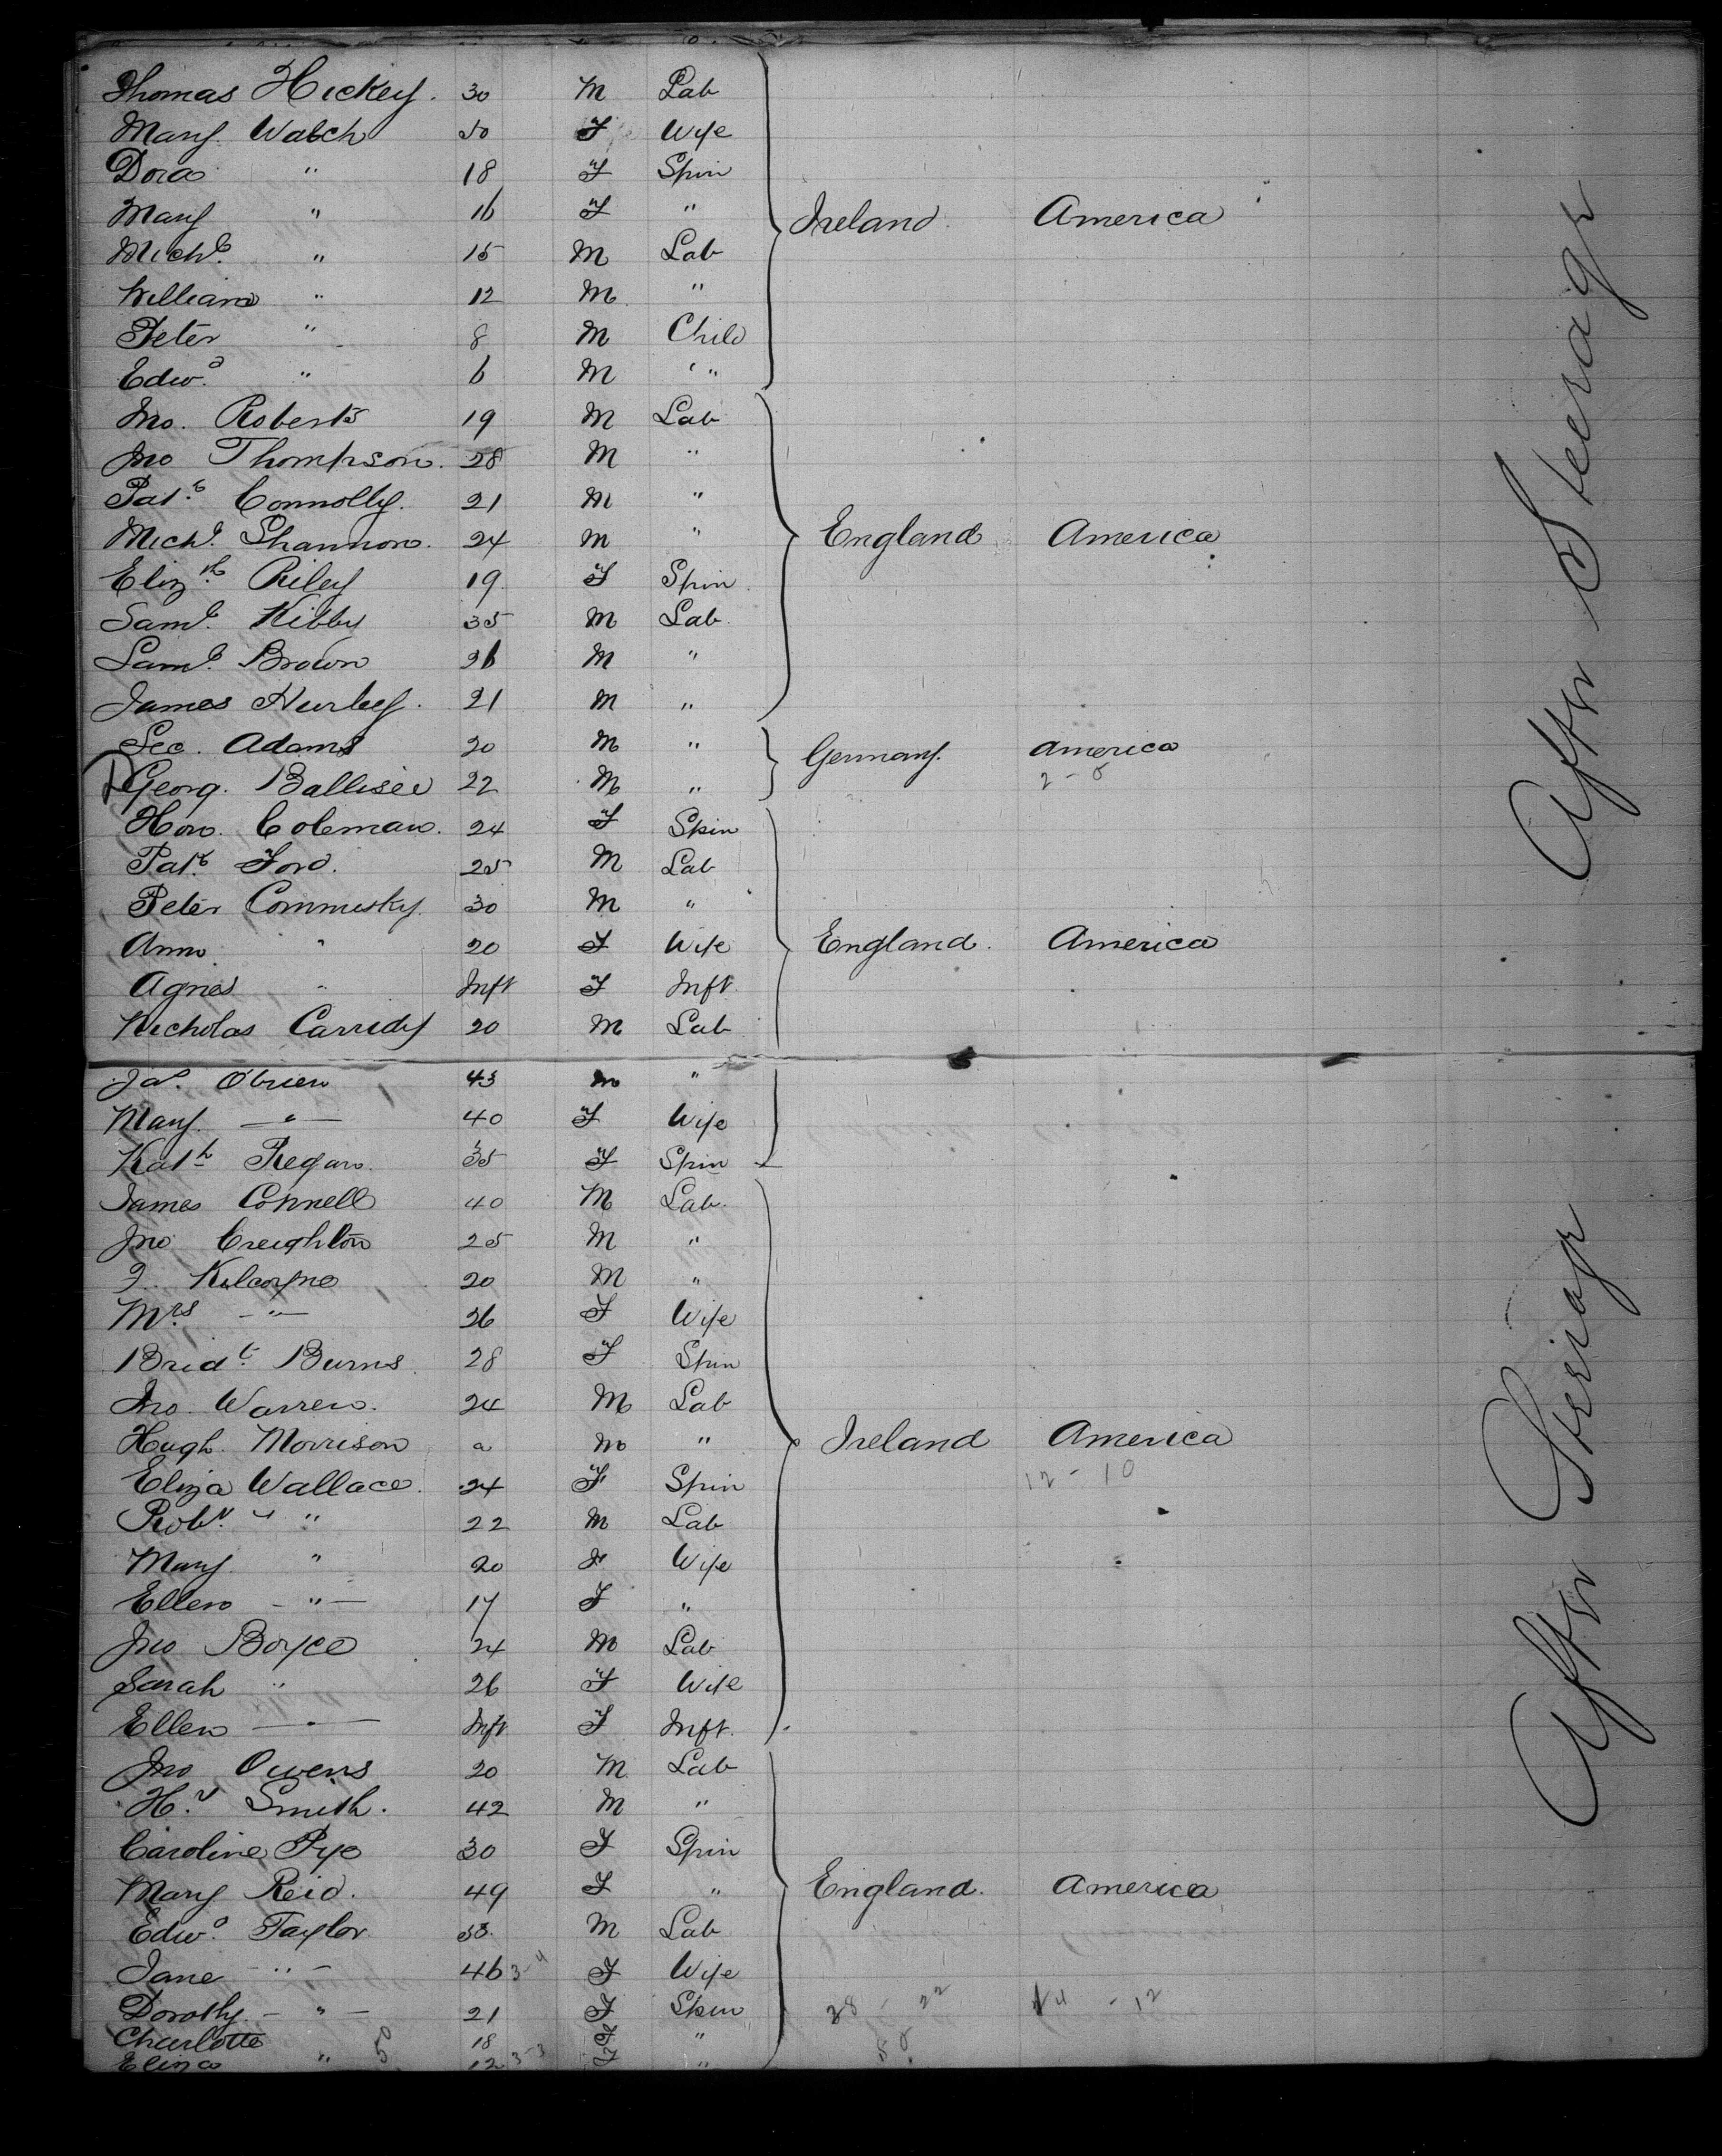 Thomas Hickey. 30 M Lab
Mary Walsh 50 F Wife
Dora " 18 F Spin
Mary " 16 F " Ireland America
Michl. " 15 M Lab
William " 12 M "
Peter " 8 M Child
Edwd. " 6 M "
Jno. Roberts 19 M Lab
Jno Thompson. 28 M "
Patk. Connolly. 21 M "
Michl. Shannon. 24 M " England America
Elizth. Riley 19 F Spin
Saml. Kibby 35 M Lab
Saml. Brown 26 M "
James Hurley. 21 M "
Adams 20 M " Germany. America
Georg. 22 M " 2-0
Hon. Coleman. 24 F Spin
Patk. Ford. 25 M Lab
Peter Commisky. 30 M "
Ann " 20 F Wife England. America
Agnes " Inft F Inft.
Nicholas 20 M Lab
Jas. O'brien 43 M "
Mary. " 40 F Wife
Kath Regan. 35 F Spin
James Connell 40 M Lab.
Jno Creighton 25 M "
Kilcoyne 20 M "
Mrs " 26 F Wife
Bridt. Burns. 28 F Spin
Jno. Warren. 24 M Lab
Hugh. Morrison a M " Ireland America
Eliza Wallace. 24 F Spin 12-10
Robt. " 22 M Lab
Mary. " 20 F Wife
Ellen " 17 F "
Jno Boyce 24 M Lab
Sarah " 26 F Wife
Ellen " Inft F Inft.
Jno Owens 20 M Lab
Hy. Smith. 42 M "
Caroline Pye 30 F Spin
Mary Reid. 49 F " England. America
Edwd. Taylor 53. M Lab
Jane " 46 3-4 F Wife
Dorothy. " 21 F Spin 28 - 22 14 - 12
Charlotte 18 F " 50
Eliza " 5 12 3-3 F "
Aftr Steerage
Aftr Sterage